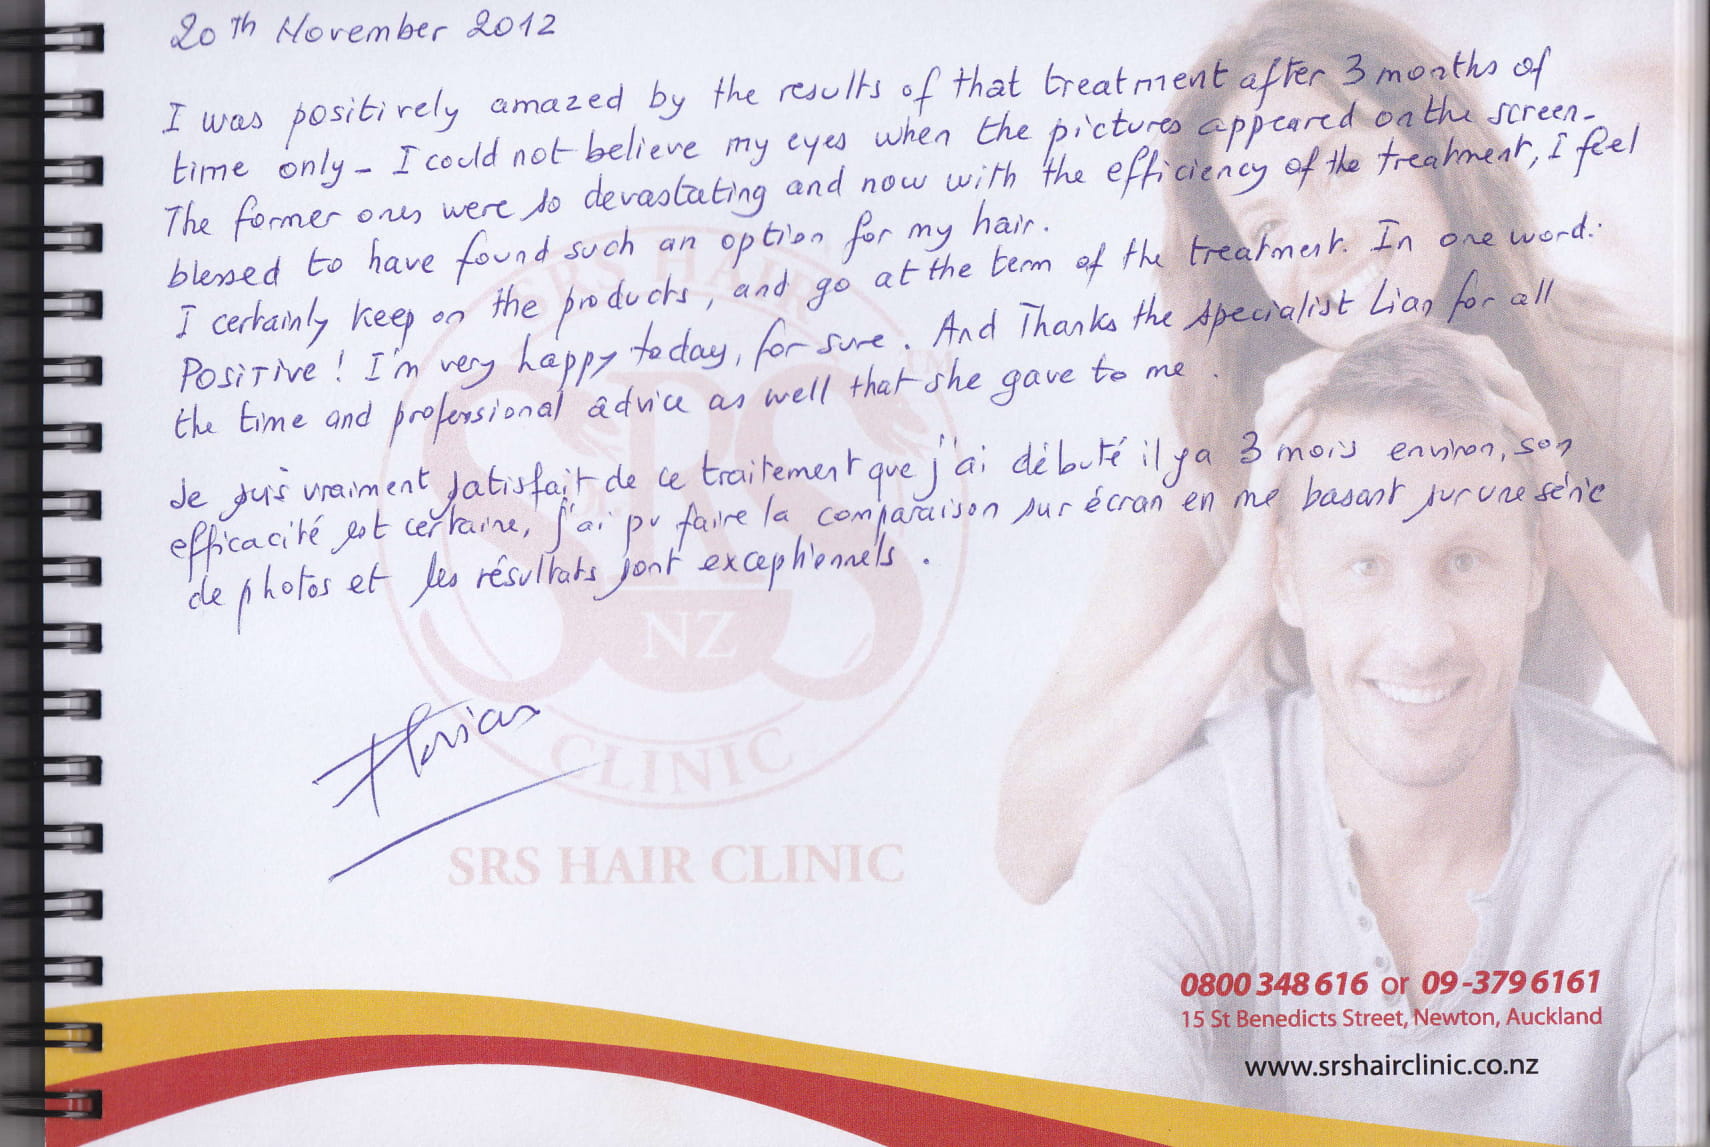 20Th November 2012
I was positively amazed by the results of that treatment after 3 months of
time only - I could not believe my eyes when the pictures appeared on the screen-
The former ones were so devastating and now with the efficiency of the treatment, I feel
blessed to have found such an option for my hair.
I certainly keep on the products, and go at the term of the treatment. In one word:
Positive! I'm very happy today, for sure. And Thanks the specialist Lian for all
the time and professional advice as well that she gave to me.
Je suis vraiment satisfait de ce traitement que j'ai débuté il ya 3 mois environ, son
efficacité est certaine, j'ai pu faire la comparaison sur écran en me basant sur une série
de photos et les résultats sont exceptionnels.
Florian
SRS HAIR
SRS
TM
NZ
CLINIC
SRS HAIR CLINIC
0800 348 616 or 09-379 6161
15 St Benedicts Street, Newton, Auckland
www.srshairclinic.co.nz